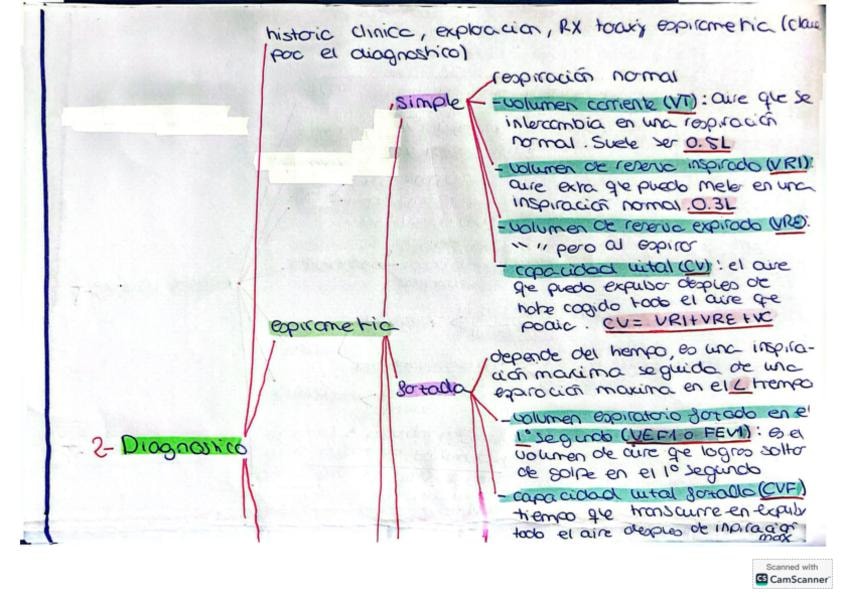 historia clinica, exploración, RX torax y espirometria (clave
por el diagnostico)
simple
respiración normal
-volumen corriente (VT): aire que se
intercambia en una respiración
normal. Suele ser 0.5L
-volumen de reserva inspirado (VRI):
aire extra que puedo meter en una
inspiración normal. 0.3L
-volumen de reserva expirado (VRE):
" " pero al espirar
-capacidad vital (CV): el aire
que puedo expulsar despues de
habe cogido todo el aire que
podia. CV= VRI+VRE+VC
espirometria
depende del tiempo, es una inspira-
ción maxima seguida de una
espiración maxima en el L tiempo
forzada
-volumen espiratorio forzado en el
1º segundo (VEF1 o FEV1): es el
volumen de aire que logras soltar
de golpe en el 1º segundo
2- Diagnostico
-capacidad vital forzada (CVF)
tiempo que transcurre en expuls
todo el aire despues de inspiración
max
Scanned with
CS CamScanner